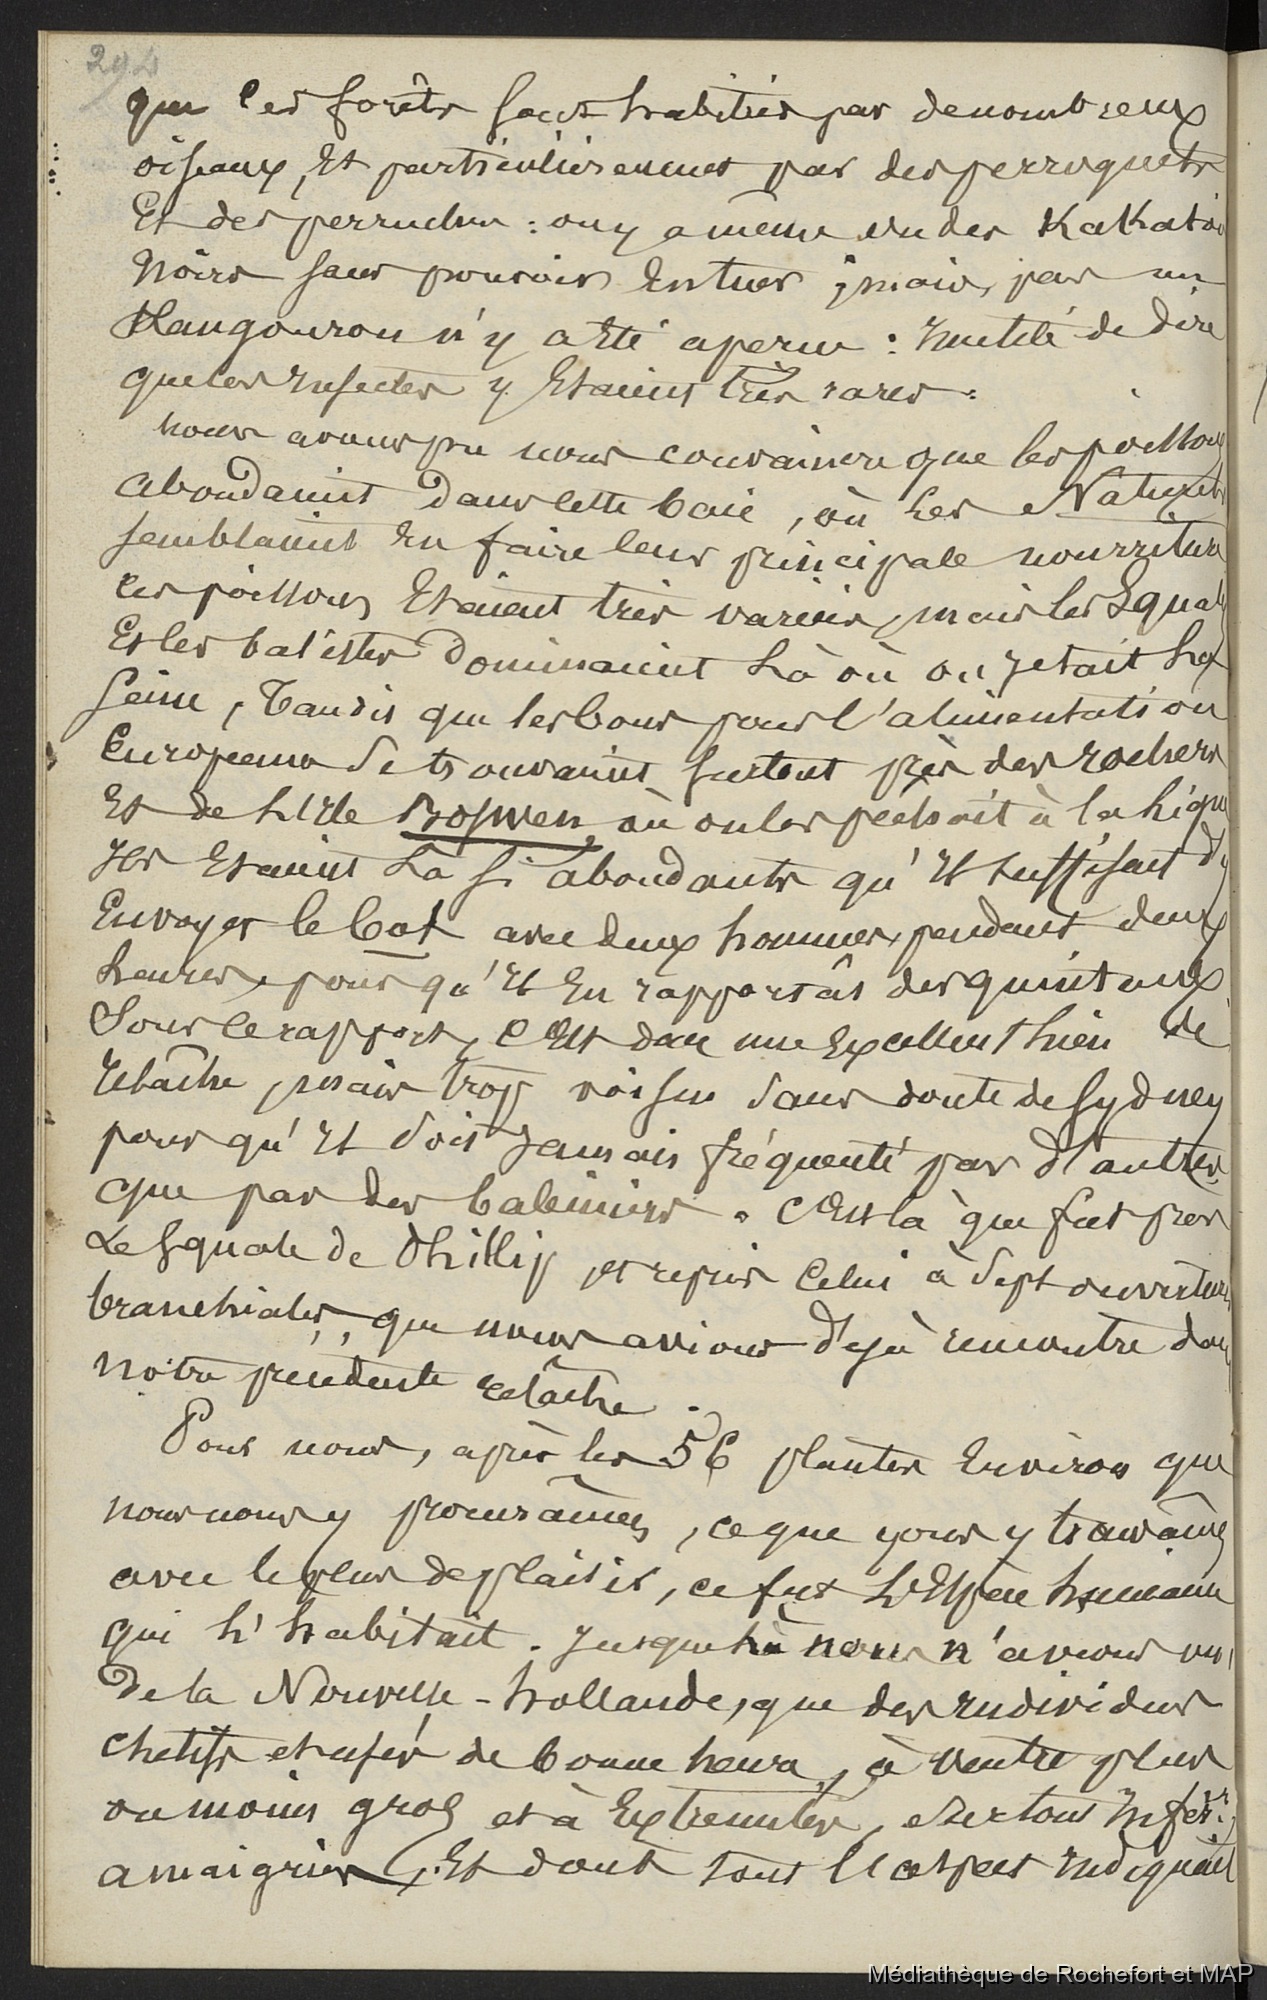 294
que les forêts sont habitées par de nombreux
oiseaux, Et particulièrement par des perroquets
Et des perruches : on y a même vu des Kakatoe
Noirs sans pouvoir En tuer ; mais pas un
Kangourou n'y a Eté aperçu : Inutile de dire
que les Insectes y Etaient très rares.
nous avons pu nous convaincre que les poissons
abondaient dans cette baie, où les Naturels
semblaient En faire leur principale nourriture
ces poissons Etaient très variés, mais les Squales
Et les balistes dominaient Là où on Jetait La
Seine, Tandis que les bons pour l'alimentation
Européenne se trouvaient surtout près des rochers
Et de L'Ile Bowen, où on les pêchait à la Ligne
Ils Etaient Là si abondants qu'Il suffisait d'y
Envoyer le bot avec deux hommes, pendant deux
heures, pour qu'Il En rapportât des quintaux.
Sous ce rapport, c'Est donc un Excellent Lieu de
relâche, mais trop voisin sans doute de Sydney
pour qu'Il soit Jamais fréquenté par d'autres
que par des baleiniers. C'Est là que fut pris
Le Squale de Phillip et repris Celui à Sept ouvertures
branchiales, que nous avions déjà rencontré dans
notre précédente relâche.
Pour nous, après les 56 plantes Environ que
nous nous y procurâmes, ce que nous y trouvâmes
avec le plus de plaisir, ce fut L'Espèce humaine
qui L'habitait. Jusque Là nous n'avions vu,
de la Nouvelle-hollande, que des Individus
chétifs et usés de bonne heure, à ventre plus
ou moins gros et à Extremités, surtout Infér.res
amaigries, Et dont tout l'aspect Indiquait
Médiathèque de Rochefort et MAP